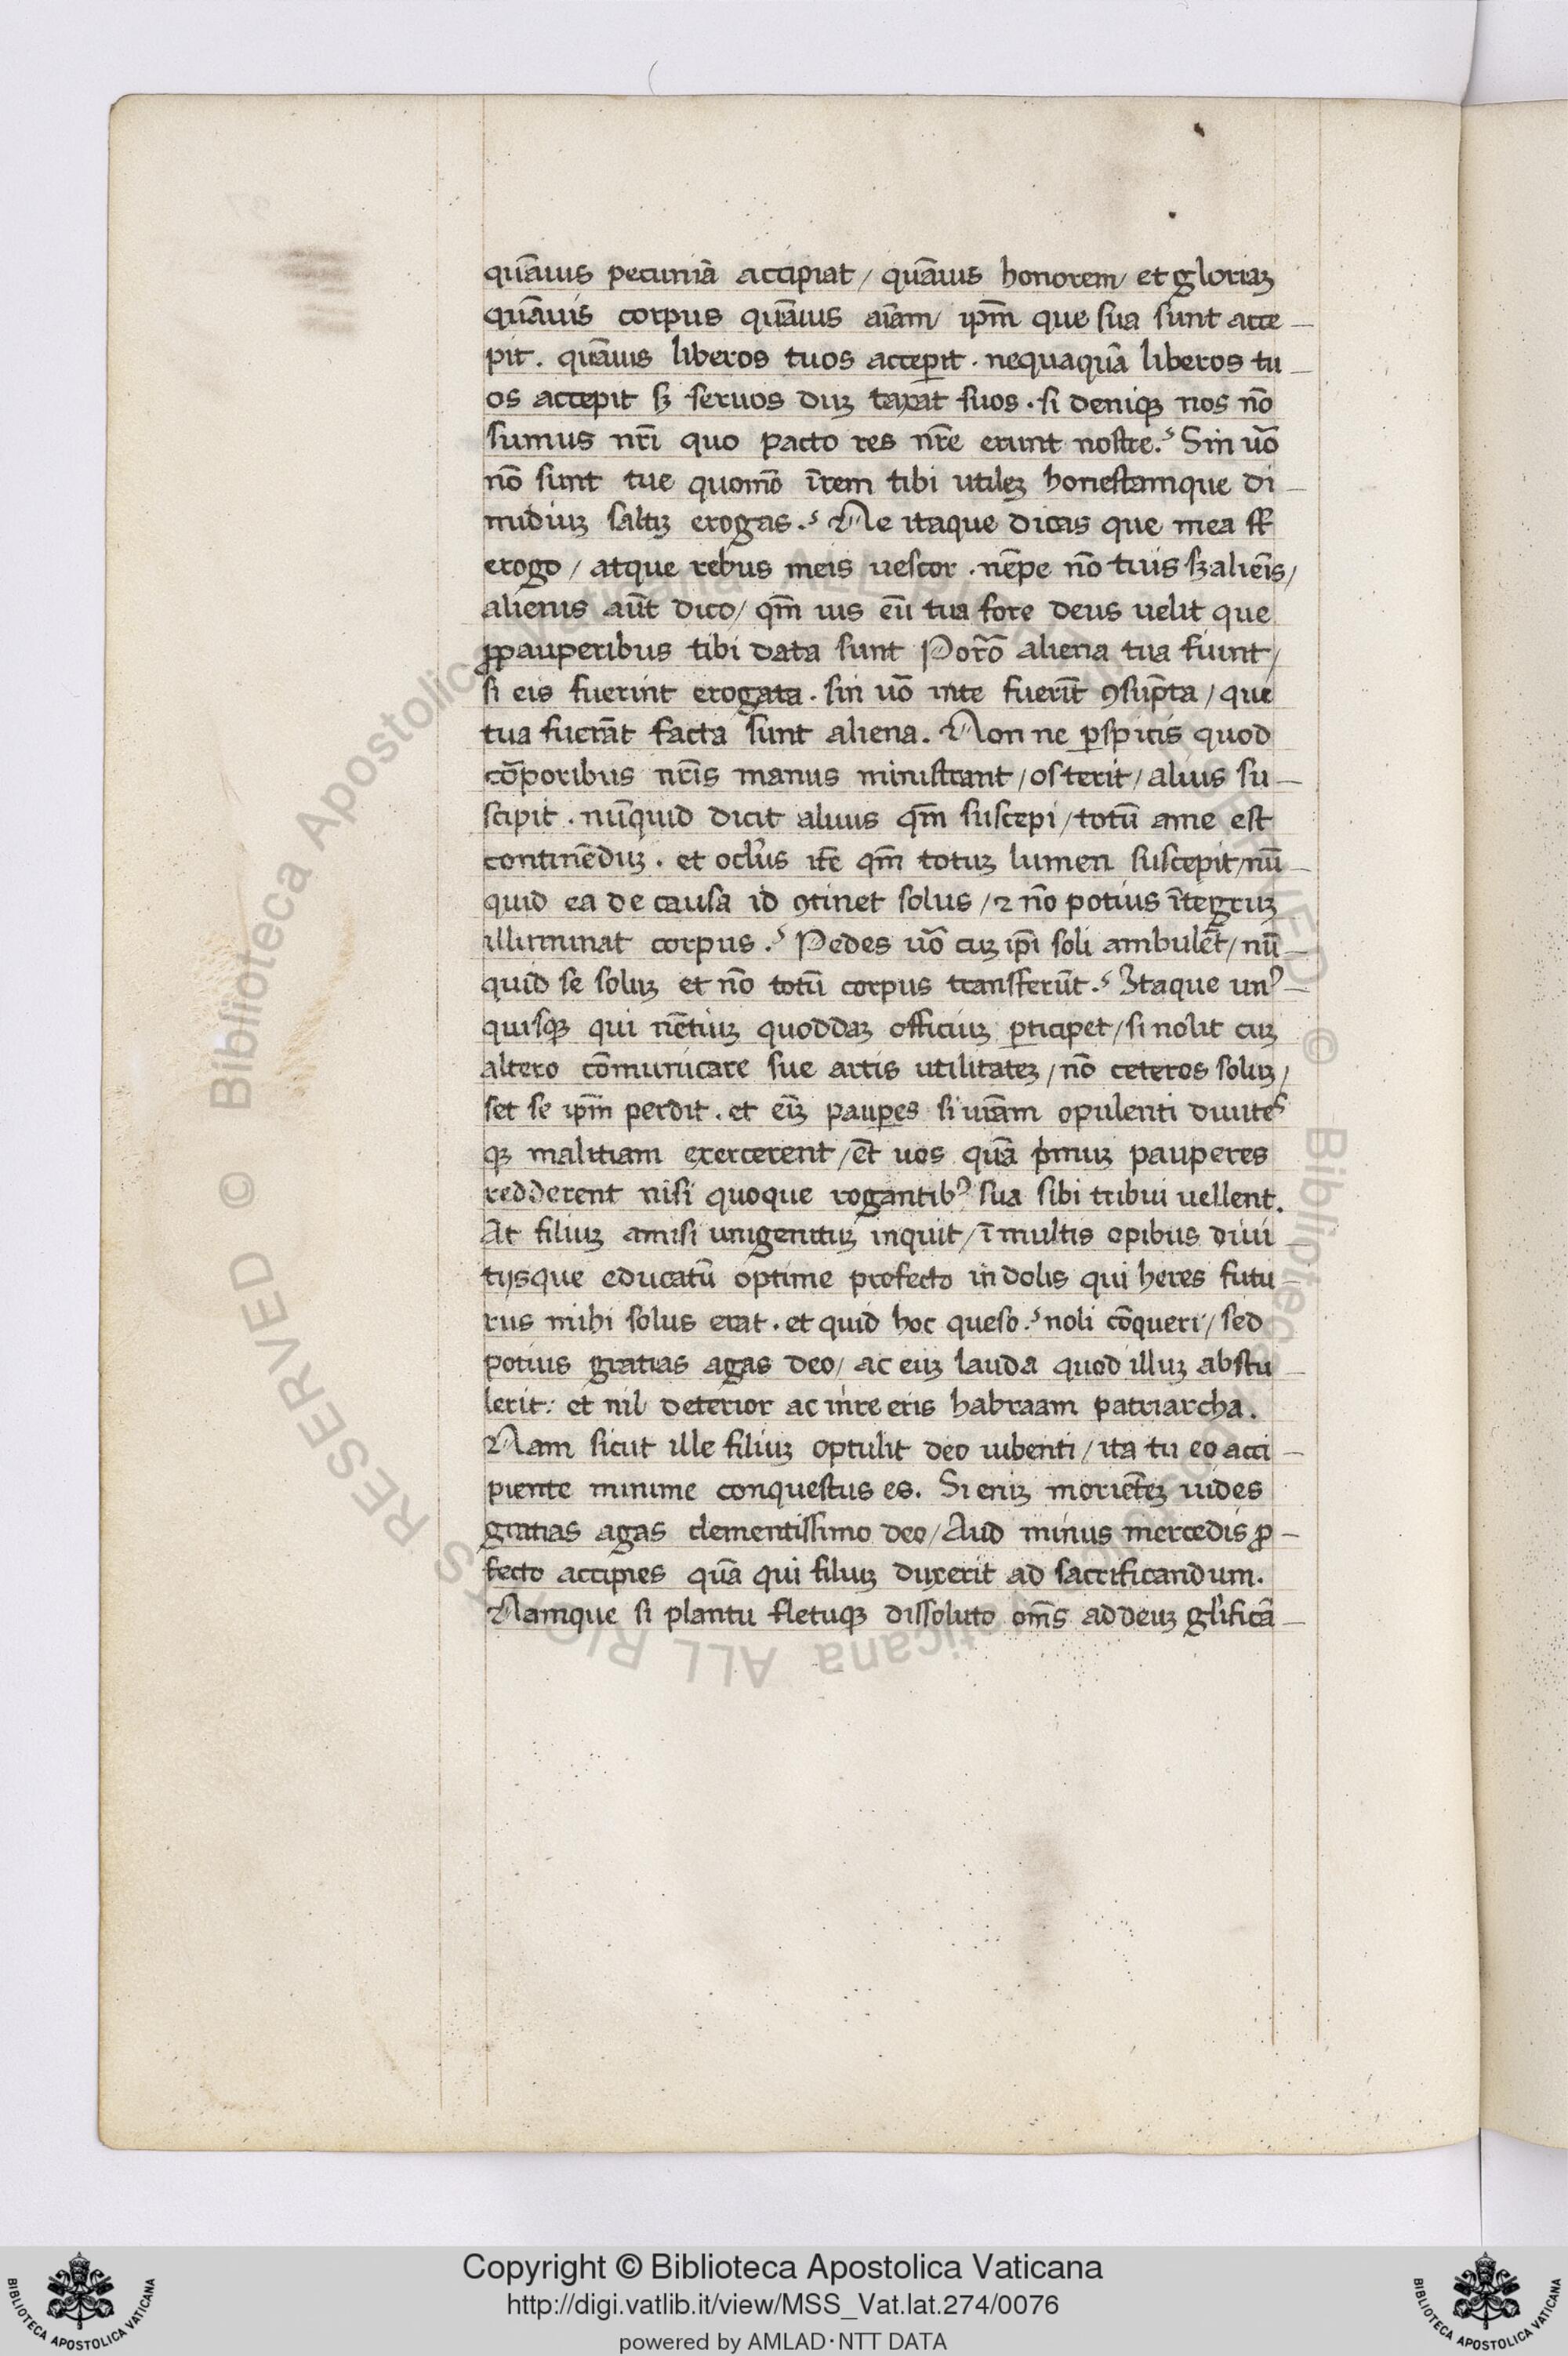 quāuis pecuniā accipiat / quāuis honorem / et gloriaꝫ
quāuis corpus quāuis aīam / ip̄m que sua sunt acce-
pit. quāuis liberos tuos acceꝑit. nequaquā liberos tu-
os accepit sꝫ seruos duꝫ taxat suos. si deniqꝫ nos nō
sumus nr̄i quo pacto res nr̄e erunt nostre? Sin uō
nō sunt tue quomō īrem tibi utileꝫ honestamque di-
midiuꝫ saltꝫ erogas? Ne itaque dicas que mea
erogo / atque rebus meis uescor. nēpe nō tuis sꝫ aliēis /
alienis aūt dico / qm̄ uis eū tua fore deus uelit que
ꝓpauperibus tibi data sunt Porrō aliena tua fiunt /
si eis fuerint erogata. sin uō inte fuerīt ꝯsūpta / que
tua fuerāt facta sunt aliena. Non ne ꝑspicis quod
cōporibus nr̄is manus ministrant / os terit / aluus su-
scipit. nūquid dicit aluus qm̄ suscepi / totū ame est
continēduꝫ. et oclūs itē qm̄ totuꝫ lumen suscepit / nū-
quid ea de causa id ꝯtinet solus / ⁊ nō potius ītegruꝫ
illuminat corpus? Pedes uō cuꝫ ip̄i soli ambulēt / nū-
quid se soluꝫ et nō totū corpus transferūt? Itaque unꝰ-
quisqꝫ qui nētiuꝫ quoddaꝫ officiuꝫ ꝑticipet / si nolit cuꝫ
altero cōmunicare sue artis utilitateꝫ / nō ceteros soluꝫ /
set se ip̄m perdit. et eīꝫ pauꝑes si uīam opulenti diuites
qꝫ malitiam exercerent / ēt uos quā pͥmuꝫ pauperes
redderent nisi quoque rogantibꝰ sua sibi tribui uellent.
At filiuꝫ amisi unigenituꝫ inquit / ī multis opibus diui-
tijsque educatū optime profecto indolis qui heres futu-
rus mihi solus erat. et quid hoc queso? noli cōqueri / sed
potius gratias agas deo / ac euꝫ lauda quod illuꝫ abstu-
lerit: et nil deterior ac inre eris habraam patriarcha.
Nam sicut ille filiuꝫ optulit deo iubenti / ita tu eo acci-
piente minime conquestus es. Si eniꝫ moriēteꝫ uides
gratias agas clementissimo deo / Aud minus mercedis ꝓ-
fecto accipies quā qui filiuꝫ duxerit ad sacrificandum.
Namque si planctu fletuqꝫ dissoluto om̄s ad deuꝫ gl̄ificā-
Copyright © Biblioteca Apostolica Vaticana
http://digi.vatlib.it/view/MSS_Vat.lat.274/0076
powered by AMLAD·NTT DATA
BIBLIOTECA APOSTOLICA VATICANA
BIBLIOTECA APOSTOLICA VATICANA
© Biblioteca Apostolica Vaticana ALL RIGHTS RESERVED
© Biblioteca Apostolica Vaticana ALL RIGHTS RESERVED